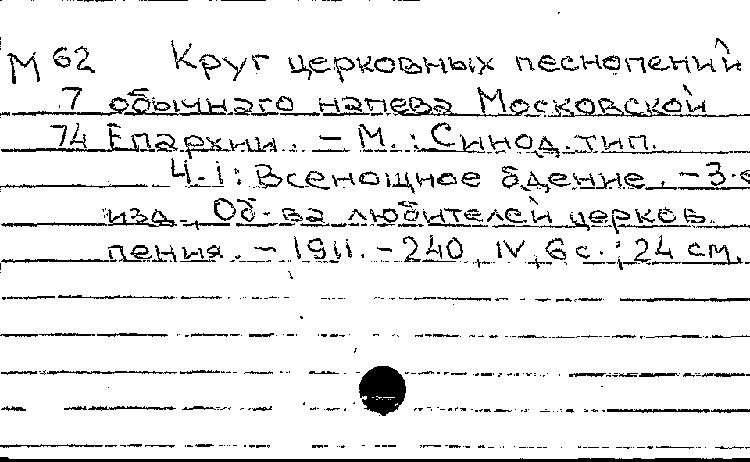 М 62 Круг церковных песнопений
7 обычного напева Московской
74 Епархии. – М.: Синод. тип.
Ч. I: Всенощное бдение. – 3-е
изд., Об-ва любителей церков.
пения. – 1911. – 240, IV, 6 с.; 24 см.